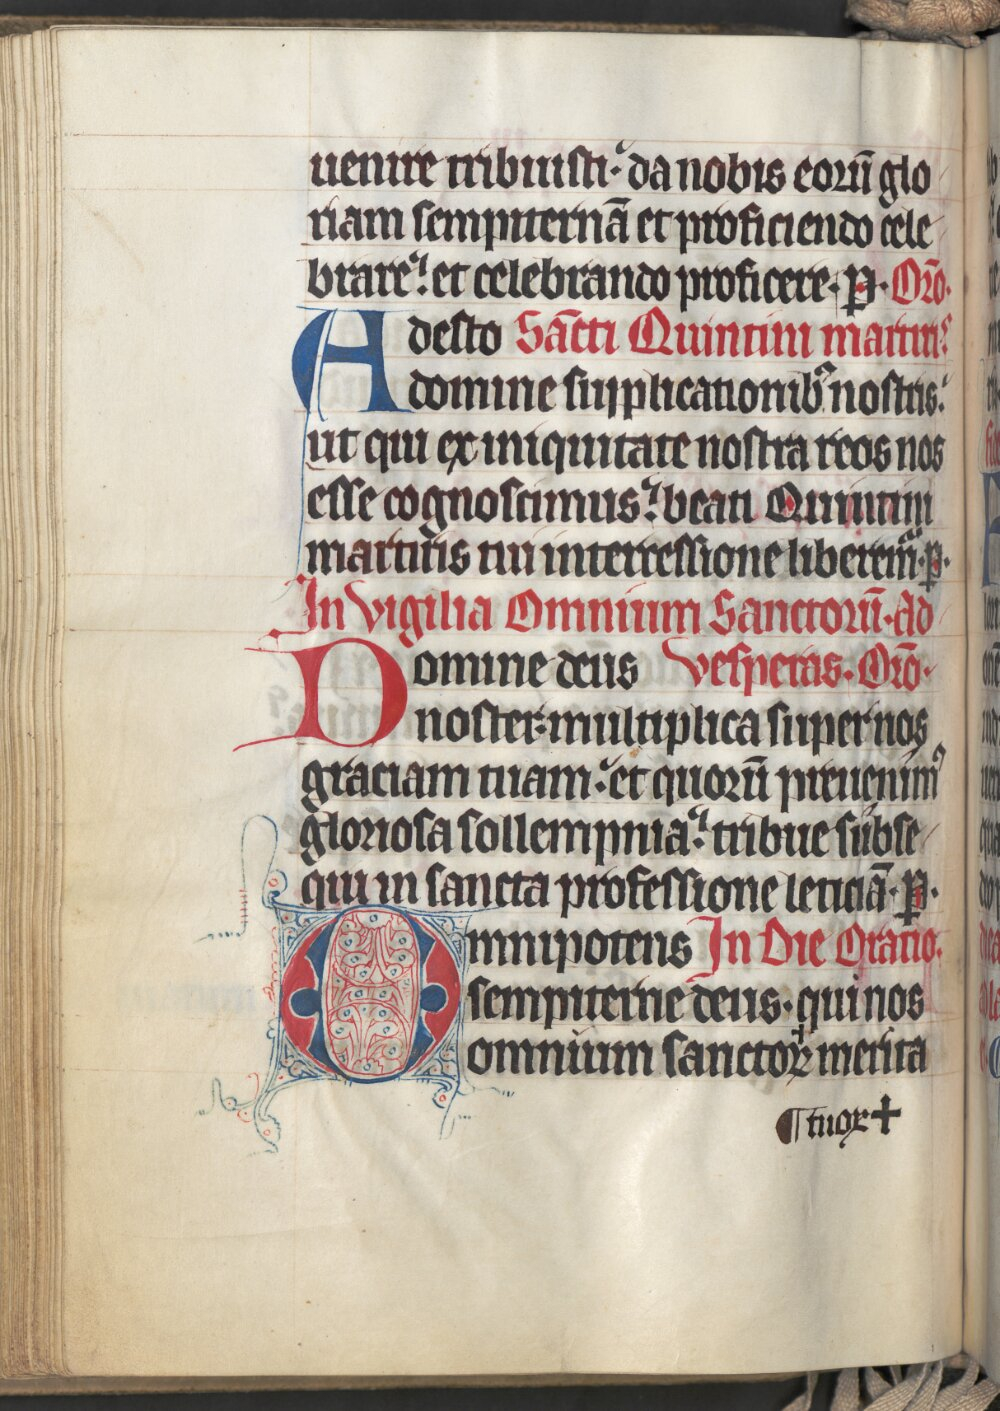 uenire tribuisti· da nobis eorū glo
riam sempiternā et proficiendo cele
brare: et celebrando proficere· p̄· Or̄o·
Adesto Sācti Quintini martiris
domine supplicationibꝰ nostris:
ut qui ex iniquitate nostra reos nos
esse cognoscimus: beati Quintini
martiris tui intercessione liberemᷓ· p̄·
In vigilia Omnium Sanctorū· Ad
Domine deus vesperas· Or̄o·
noster· multiplica super nos
graciam tuam: et quorū preuenimꝰ
gloriosa sollempnia: tribue subse
qui in sancta professione leticiā· p̄·
Omnipotens In Die Oratio·
sempiterne deus· qui nos
omnium sanctoꝝ + merita
¶ tuoꝝ +